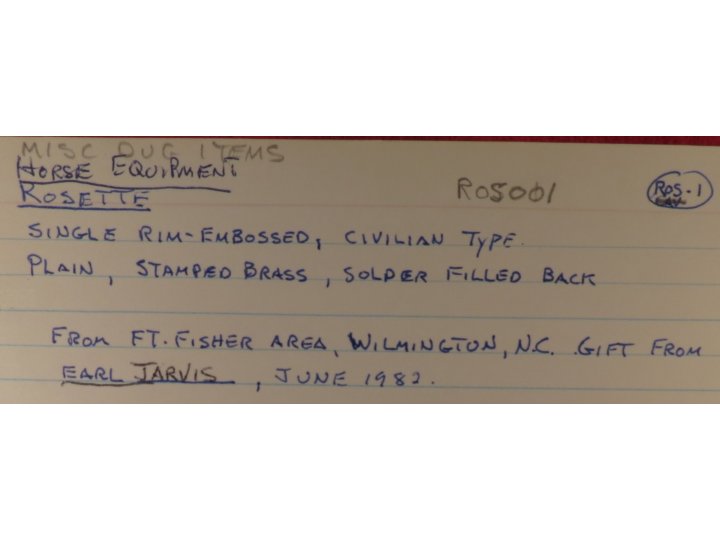 MISC DUG ITEMS
HORSE EQUIPMENT
ROSETTE
ROS001
ROS-1
SINGLE RIM-EMBOSSED, CIVILIAN TYPE.
PLAIN, STAMPED BRASS, SOLDER FILLED BACK
FROM FT. FISHER AREA, WILMINGTON, N.C. .GIFT FROM
EARL JARVIS, JUNE 1982.